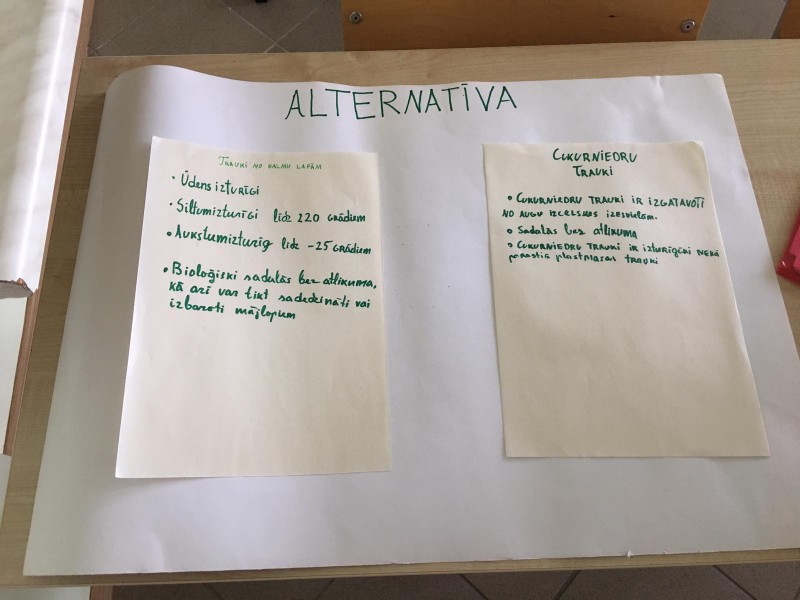 ALTERNATĪVA
TRAUKI NO PALMU LAPĀM
• Ūdens izturīgi
• Siltumizturīgi līdz 220 GRĀDIEM
• Aukstumizturīg līdz -25 GRĀDIEM
• Bioloģiski sadalās bez atlikuma,
kā arī var tikt sadedzināti vai
izbaroti mājlopum
CUKURNIEDRU
TRAUKI
• CUKURNIEDRU TRAUKI IR IZGATAVOTI
NO AUGU IZCELSMES IZEJVIELĀM.
• Sadalās bez atlikuma
• CUKURNIEDRU TRAUKI IR IZTURĪGĀKI NEKĀ
parastie plastmasas trauki